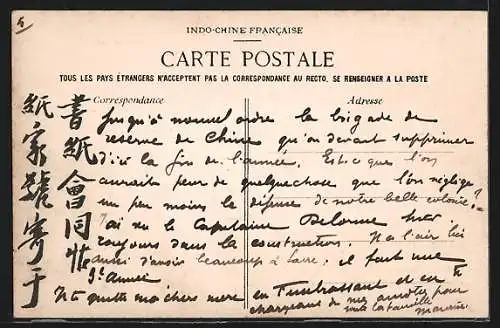 5
INDO-CHINE FRANÇAISE
CARTE POSTALE
TOUS LES PAYS ÉTRANGERS N'ACCEPTENT PAS LA CORRESPONDANCE AU RECTO. SE RENSEIGNER A LA POSTE
Correspondance
Adresse
書紙會同
紙家號寄于
Jusqu'à nouvel ordre la brigade de
reserve de Chine qu'on devait supprimer
d'ici la fin de l'année. Est-ce que l'on
aurait peur de quelque chose que l'on néglige
un peu moins la défense de notre belle colonie?
J'ai vu le Capitaine Delorme
toujours dans la construction. Il a l'air lui
aussi d'avoir beaucoup à faire. il fait une
3e Année
Je te quitte ma chère mère en t'embrassant et en te
chargeant de mes amitiés pour
toute la famille
Maurice